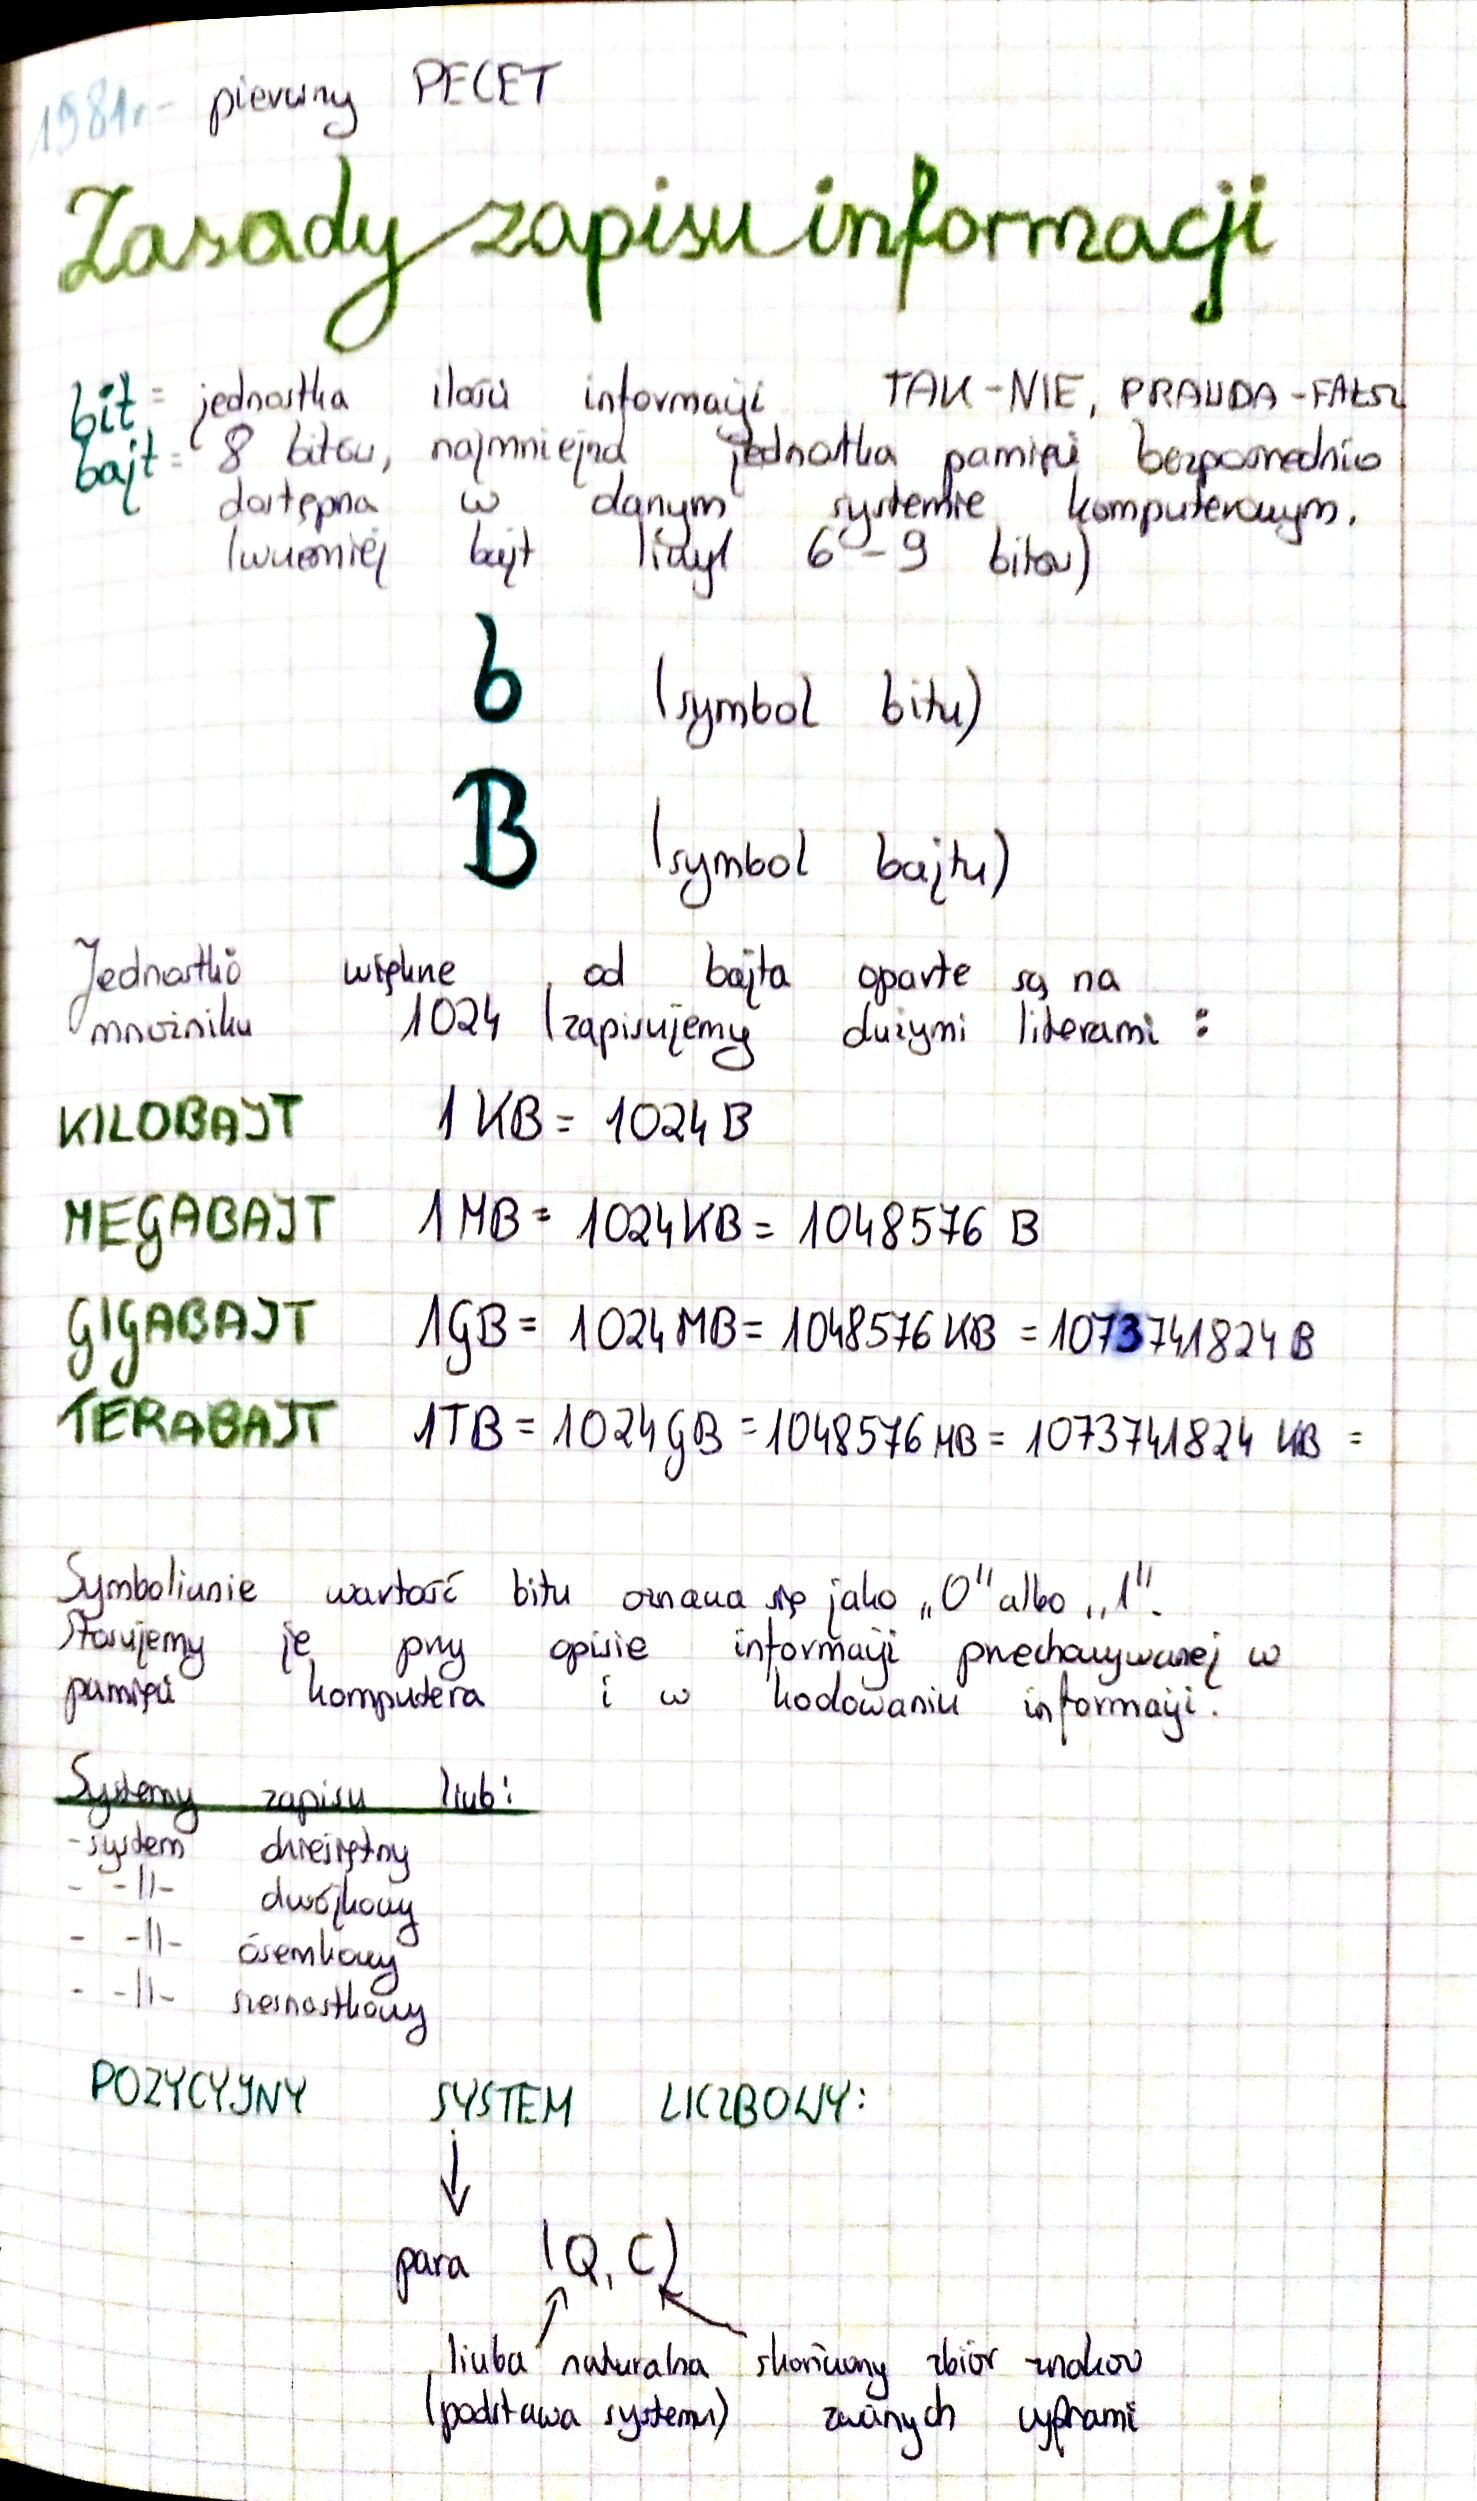 1981r.- pierwszy PECET
Zasady zapisu informacji
bit = jednostka ilości informacji TAK-NIE, PRAWDA-FAŁSZ
bajt = 8 bitów, najmniejsza jednostka pamięci bezpośrednio
dostępna w danym systemie komputerowym.
(wcześniej bajt liczył 6-9 bitów)
b (symbol bitu)
B (symbol bajtu)
Jednostki większe od bajta oparte są na
mnożniku 1024 (zapisujemy dużymi literami :
KILOBAJT 1 KB = 1024 B
MEGABAJT 1 MB = 1024 KB = 1048576 B
GIGABAJT 1GB = 1024 MB = 1048576 KB = 1073741824 B
TERABAJT 1TB = 1024 GB = 1048576 MB = 1073741824 KB =
Symbolicznie wartość bitu oznacza się jako „0" albo „1".
Stosujemy je przy opisie informacji przechowywanej w
pamięci komputera i w kodowaniu informacji.
Systemy zapisu liczb:
- system dziesiętny
- -||- dwójkowy
- -||- ósemkowy
- -||- szesnastkowy
POZYCYJNY SYSTEM LICZBOWY:
↓
para (Q, C)
liczba naturalna skończony zbiór znaków
(podstawa systemu) zwanych cyframi